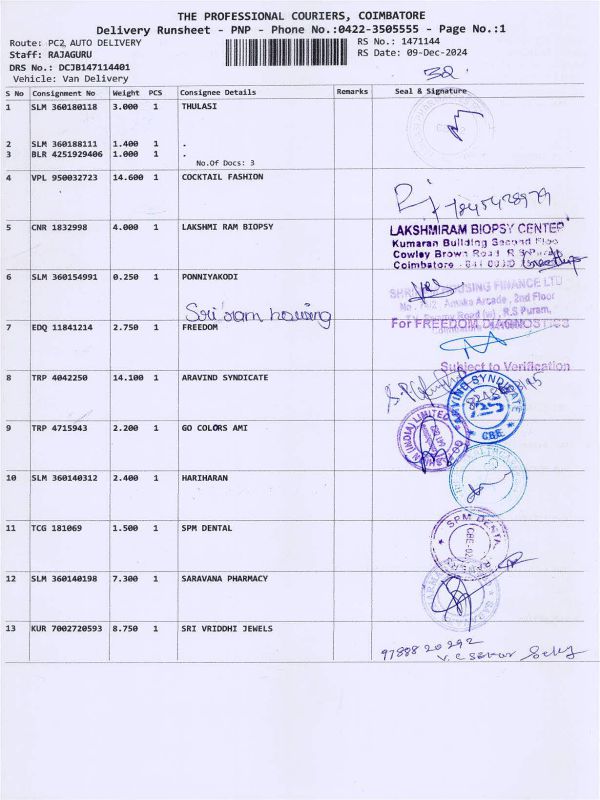 THE PROFESSIONAL COURIERS, COIMBATORE
Delivery Runsheet - PNP - Phone No.:0422-3505555 - Page No.:1
Route: PC2, AUTO DELIVERY
Staff: RAJAGURU
DRS No.: DCJB147114401
Vehicle: Van Delivery
RS No.: 1471144
RS Date: 09-Dec-2024
32
S No Consignment No Weight PCS Consignee Details Remarks Seal & Signature
1 SLM 360180118 3.000 1 THULASI
2 SLM 360188111 1.400 1 .
3 BLR 4251929406 1.000 1 .
No.Of Docs: 3
4 VPL 950032723 14.600 1 COCKTAIL FASHION
5 CNR 1832998 4.000 1 LAKSHMI RAM BIOPSY
LAKSHMIRAM BIOPSY CENTER
Kumaran Building Second Floo
Cowley Brown Road R S Puram
Coimbatore
6 SLM 360154991 0.250 1 PONNIYAKODI
Sri ram housing
HOUSING FINANCE LTD
Arcade, 2nd Floor
Road (w), R.S Puram,
7 EDQ 11841214 2.750 1 FREEDOM
For FREEDOM DIAGNOSTICS
Subject to Verification
8 TRP 4042250 14.100 1 ARAVIND SYNDICATE
ARVIND SYNDICATE
CBE
9 TRP 4715943 2.200 1 GO COLORS AMI
(INDIA) LIMITED
10 SLM 360140312 2.400 1 HARIHARAN
11 TCG 181069 1.500 1 SPM DENTAL
SPM DENTAL
12 SLM 360140198 7.300 1 SARAVANA PHARMACY
13 KUR 7002720593 8.750 1 SRI VRIDDHI JEWELS
97888 20292